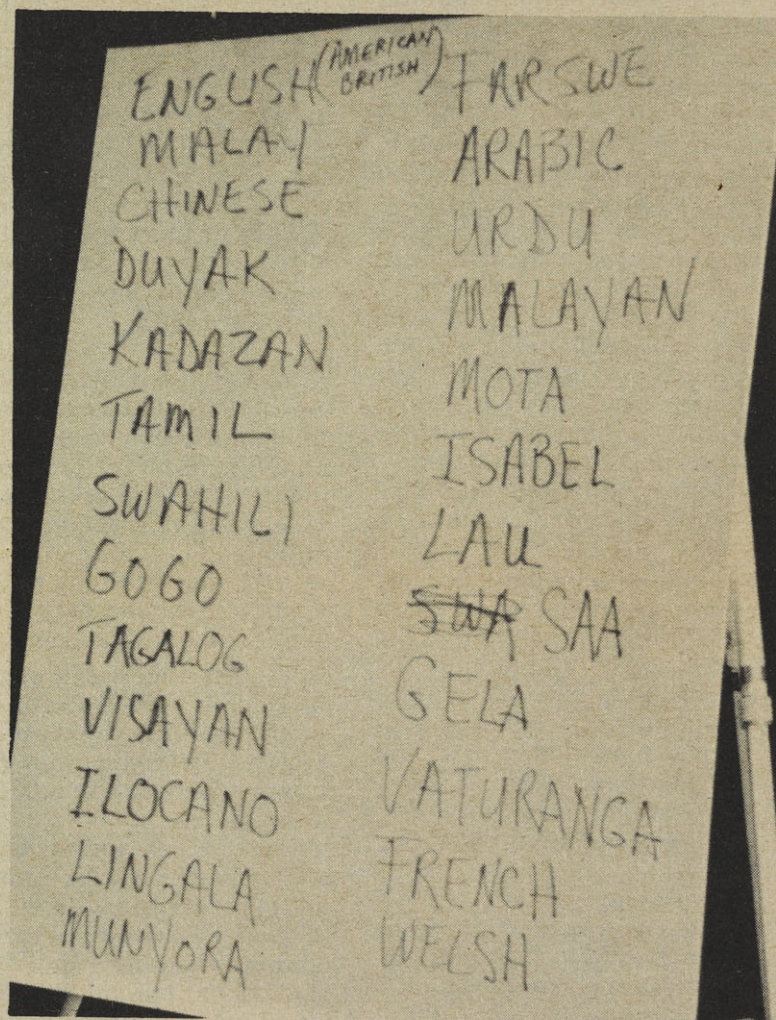 ENGLISH (AMERICAN
BRITISH)
MALAY
CHINESE
DUYAK
KADAZAN
TAMIL
SWAHILI
GOGO
TAGALOG
VISAYAN
ILOCANO
LINGALA
MUNYORA
FARSWE
ARABIC
URDU
MALAYAN
MOTA
ISABEL
LAU
SWA SAA
GELA
VATURANGA
FRENCH
WELSH